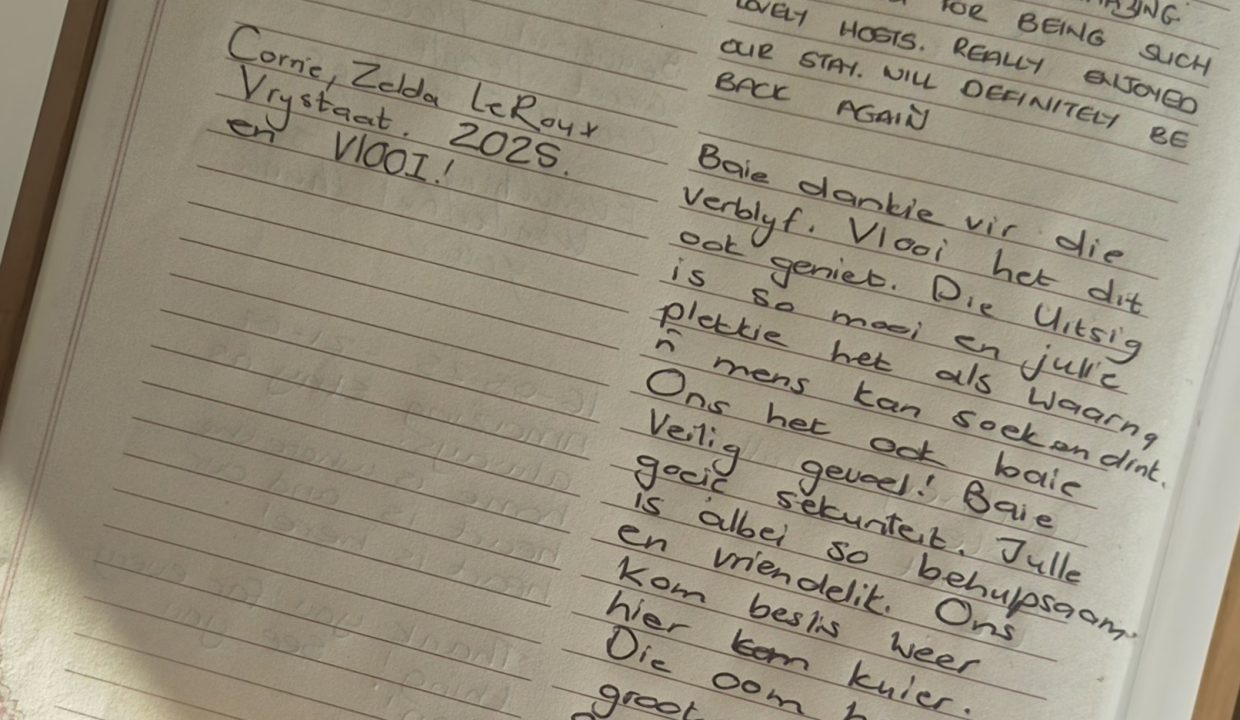 Corne, Zelda LeRoux
Vrystaat. 2025.
en VlOOI!
FOR BEING SUCH
LOVELY HOSTS. REALLY ENJOYED
OUR STAY. WILL DEFINITELY BE
BACK AGAIN
Baie dankie vir die
verblyf. Vlooi het dit
ook geniet. Die Uitsig
is so mooi en julle
plekkie het als waarna
ñ mens kan soek en dink.
Ons het ook baie
Veilig gevoel! Baie
goeie sekuriteit. Julle
is albei so behulpsaam
en vriendelik. Ons
kom beslis weer
hier kom kuier.
Die oom
groot